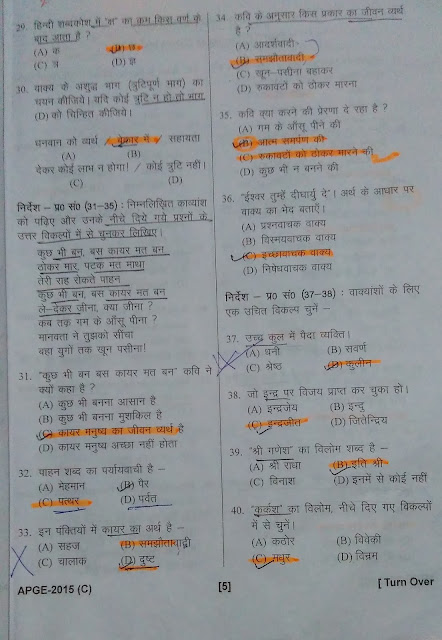 29. हिन्दी शब्दकोश में 'क्ष' का क्रम किस वर्ण के
बाद आता है ?
(A) क
(B) छ
(C) त्र
(D) ज्ञ
30. वाक्य के अशुद्ध भाग (त्रुटिपूर्ण भाग) का
चयन कीजिये। यदि कोई त्रुटि न हो तो भाग
(D) को चिन्हित कीजिये।
धनवान को व्यर्थ / बेकार में / सहायता
(A) (B)
देकर कोई लाभ न होगा। / कोई त्रुटि नहीं।
(C) (D)
निर्देश – प्र० सं० (31-35) : निम्नलिखित काव्यांश
को पढ़िए और उनके नीचे दिये गये प्रश्नों के
उत्तर विकल्पों में से चुनकर लिखिए।
कुछ भी बन, बस कायर मत बन
ठोकर मार, पटक मत माथा
तेरी राह रोकते पाहन
कुछ भी बन, बस कायर मत बन
ले-देकर जीना, क्या जीना ?
कब तक गम के आँसू पीना ?
मानवता ने तुझको सींचा
बहा युगों तक खून पसीना!
31. "कुछ भी बन बस कायर मत बन" कवि ने
क्यों कहा है ?
(A) कुछ भी बनना आसान है
(B) कुछ भी बनना मुशकिल है
(C) कायर मनुष्य का जीवन व्यर्थ है
(D) कायर मनुष्य अच्छा नहीं होता
32. पाहन शब्द का पर्यायवाची है –
(A) मेहमान
(B) पैर
(C) पत्थर
(D) पर्वत
33. इन पंक्तियों में कायर का अर्थ है –
(A) सहज
(B) समझौतावादी
(C) चालाक
(D) दुष्ट
APGE-2015 (C)
34. कवि के अनुसार किस प्रकार का जीवन व्यर्थ
है ?
(A) आदर्शवादी
(B) समझौतावादी
(C) खून-पसीना बहाकर
(D) रुकावटों को ठोकर मारना
35. कवि क्या करने की प्रेरणा दे रहा है ?
(A) गम के आँसू पीने की
(B) आत्म समर्पण की
(C) रुकावटों को ठोकर मारने की
(D) कुछ भी न बनने की
36. "ईश्वर तुम्हें दीर्घायु दे"। अर्थ के आधार पर
वाक्य का भेद बताएँ।
(A) प्रश्नवाचक वाक्य
(B) विस्मयवाचक वाक्य
(C) इच्छावाचक वाक्य
(D) निषेधवाचक वाक्य
निर्देश – प्र० सं० (37-38) : वाक्यांशों के लिए
एक उचित विकल्प चुनें –
37. उच्च कुल में पैदा व्यक्ति।
(A) धनी
(B) सवर्ण
(C) श्रेष्ठ
(D) कुलीन
38. जो इन्द्र पर विजय प्राप्त कर चुका हो।
(A) इन्द्रजेय
(B) इन्दु
(C) इन्द्रजीत
(D) जितेन्द्रिय
39. "श्री गणेश" का विलोम शब्द है –
(A) श्री राधा
(B) इति श्री
(C) विनाश
(D) इनमें से कोई नहीं
40. "कर्कश" का विलोम, नीचे दिए गए विकल्पों
में से चुनें।
(A) कठोर
(B) विवेकी
(C) मधुर
(D) विनम्र
[5]
[ Turn Over